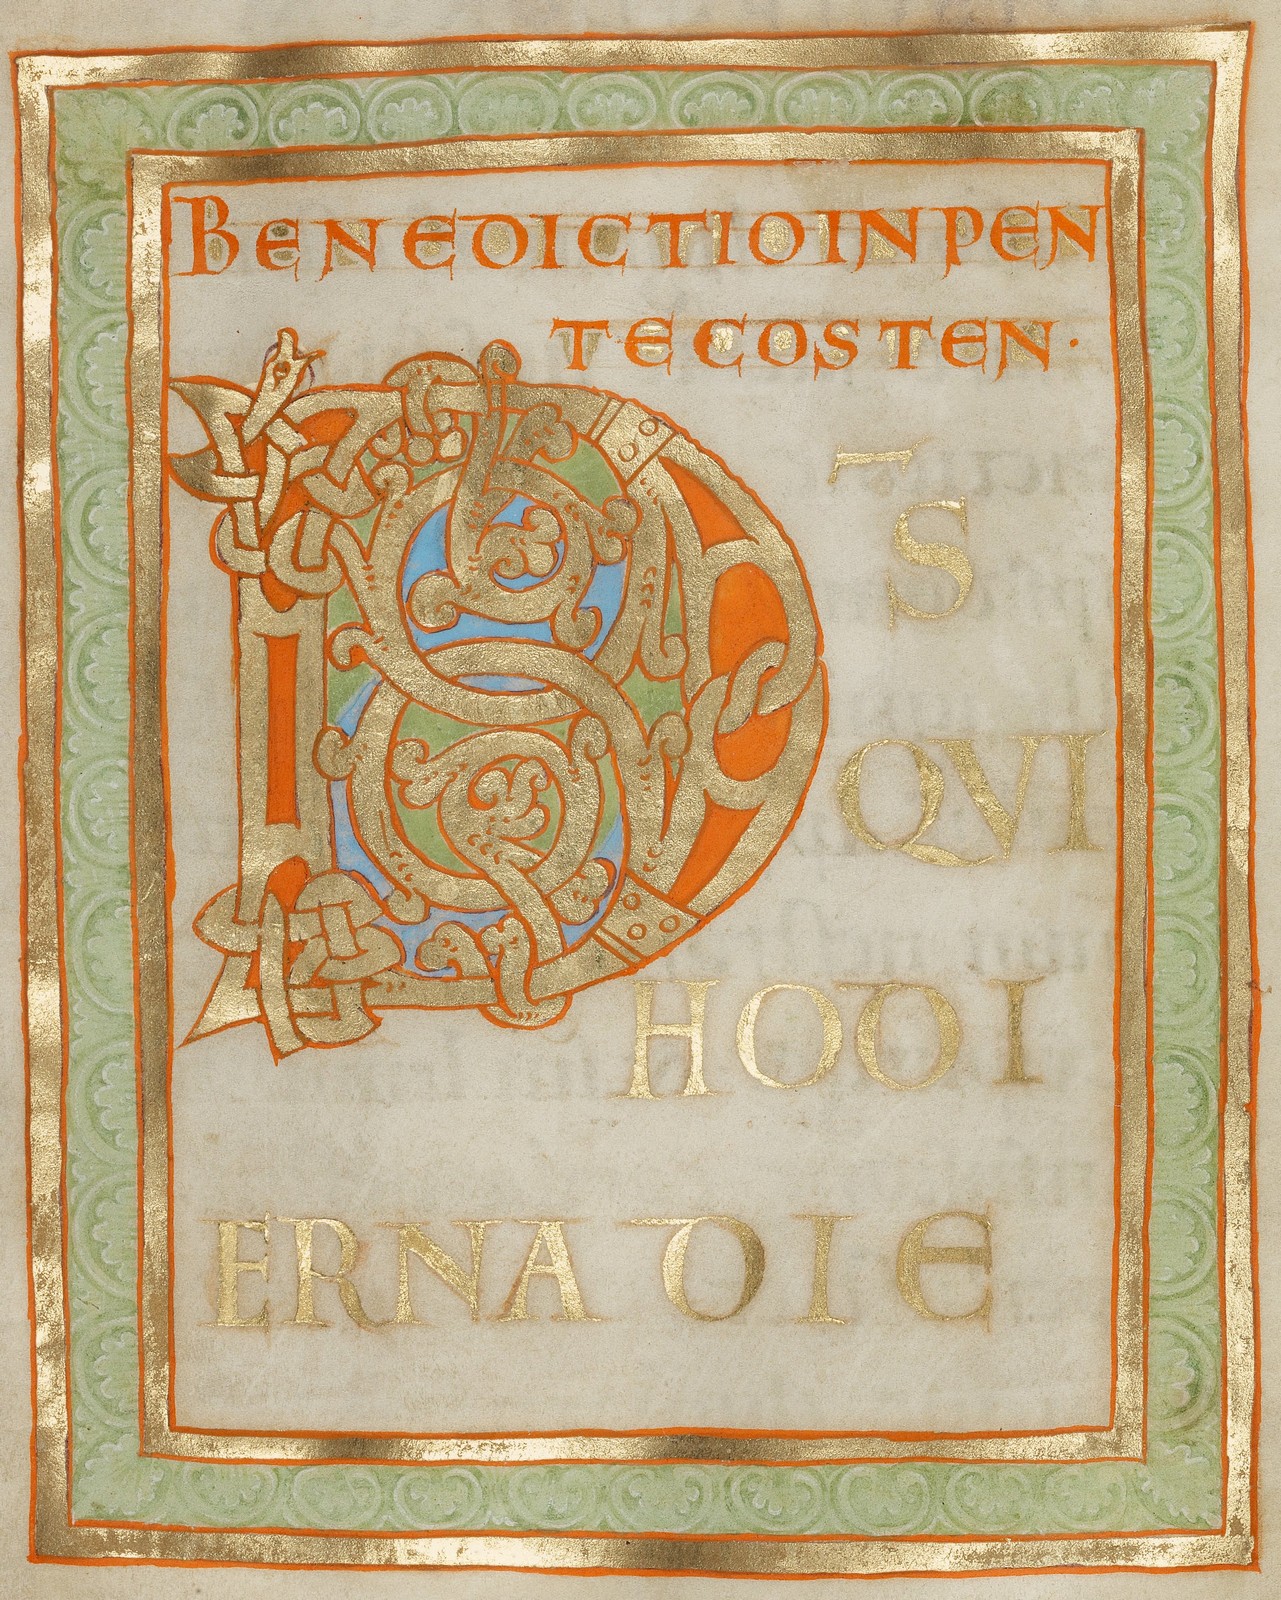 BENEDICTIO IN PEN
TECOSTEN·
D̄S
QVI
HODI
ERNA DIE